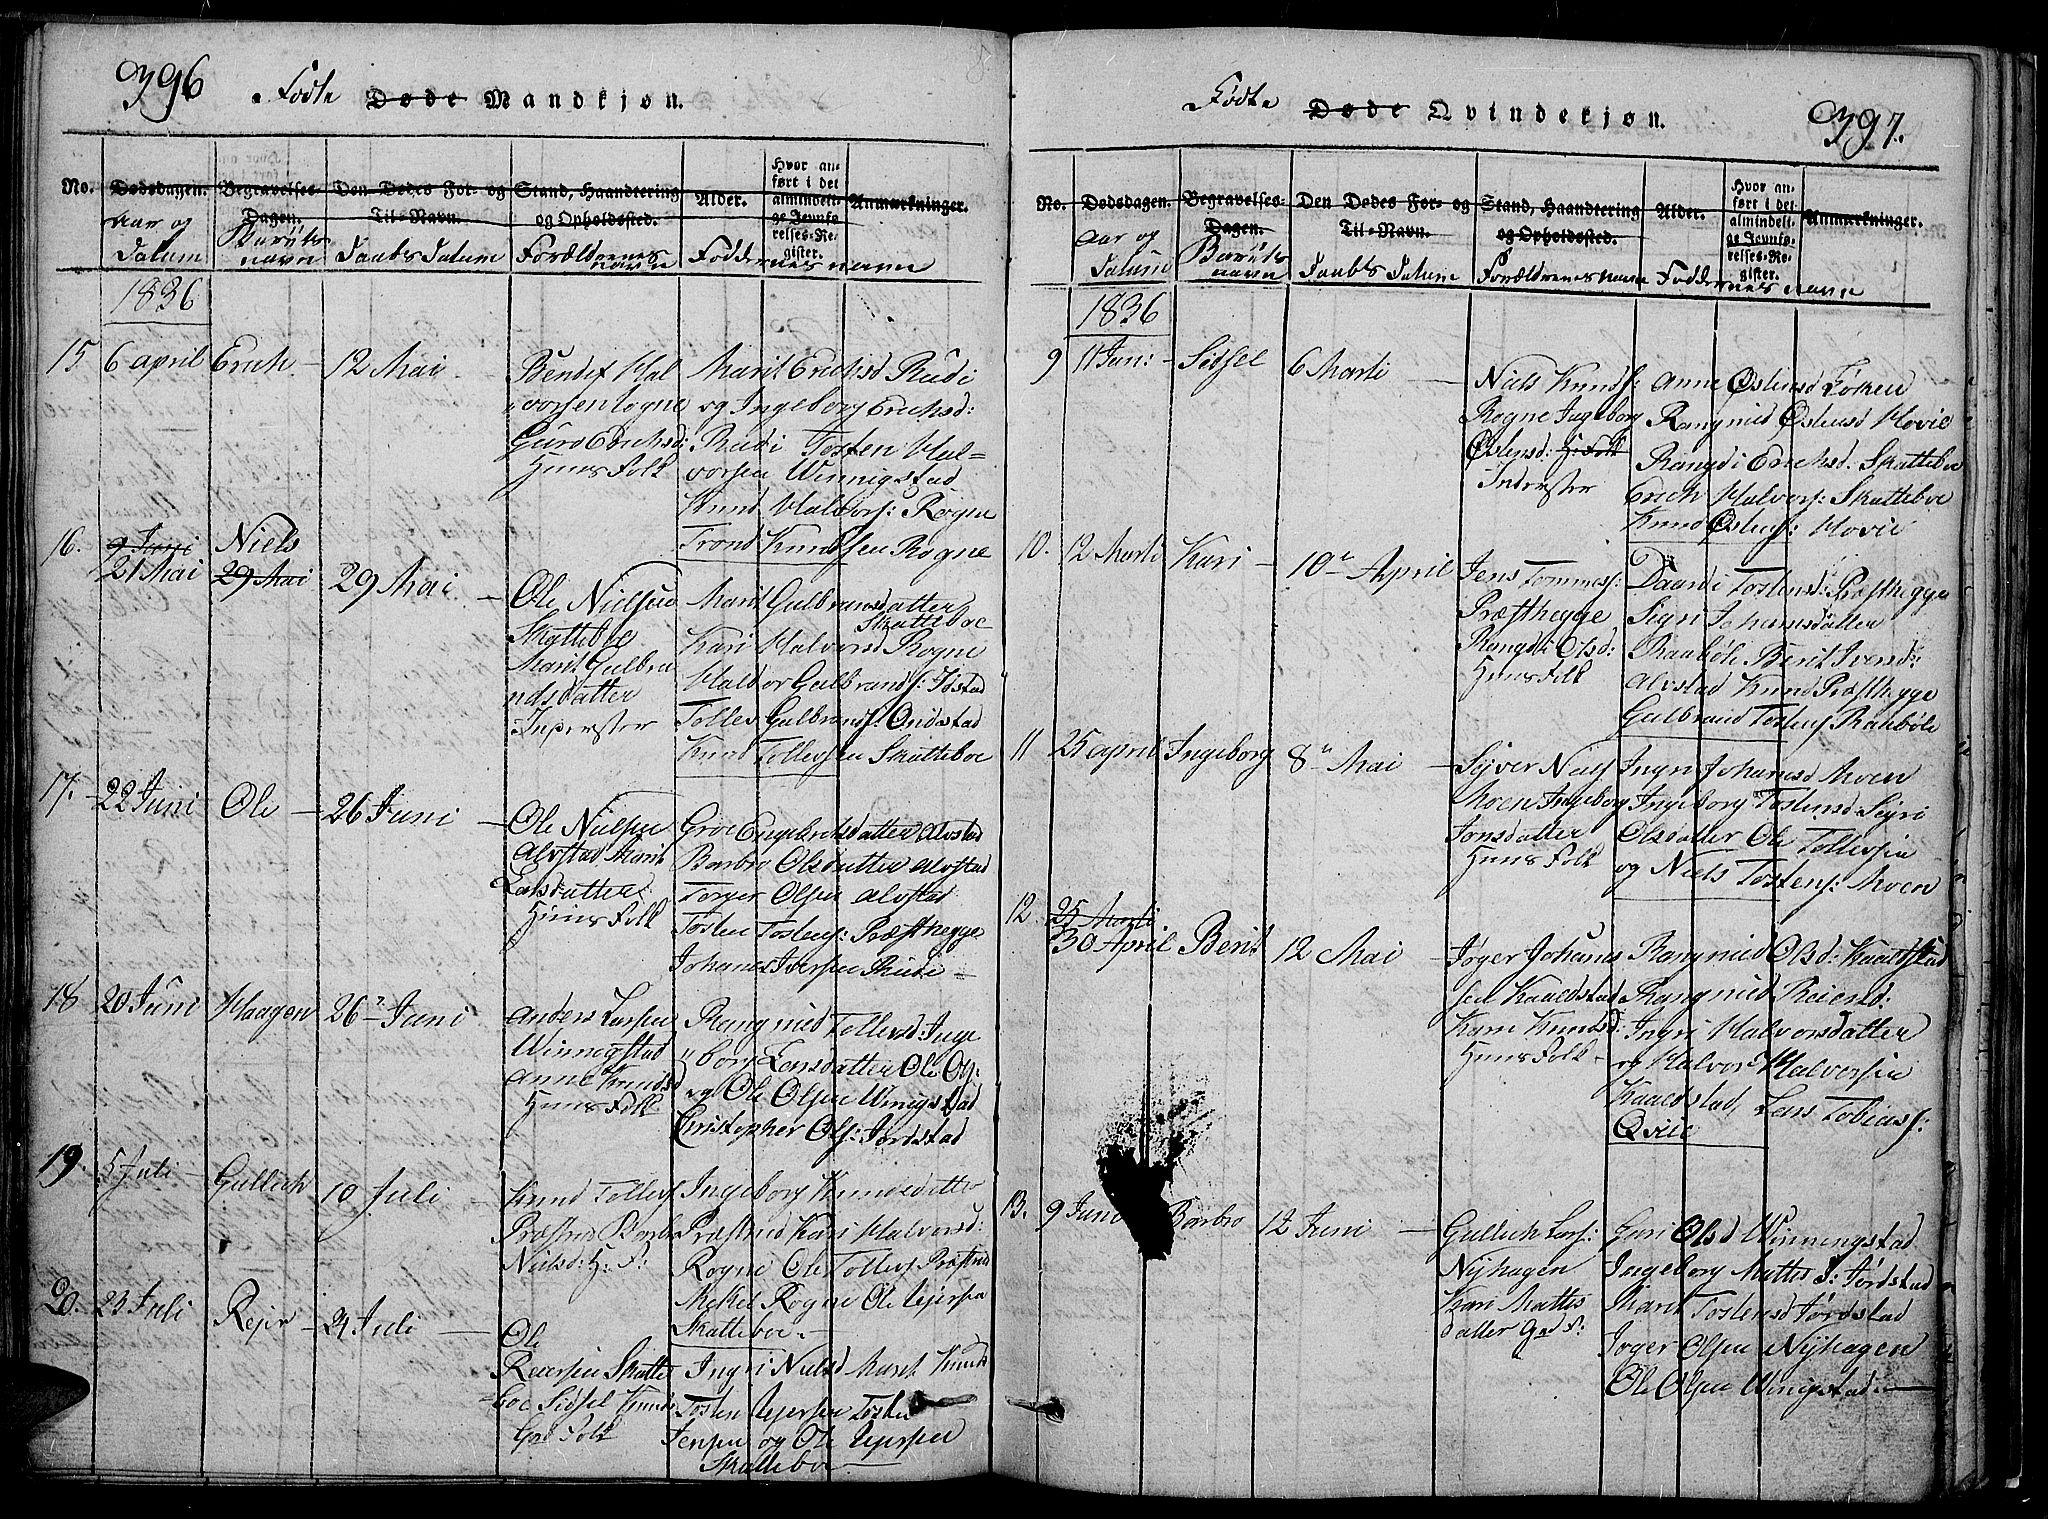 396
Fødte Døde Mandkjøn.
No.
Dødsdagen.
Aar og
Datum
Begravelses-
Dagen.
Barnets
navn
Den Dødes For- og
Til-Navn.
Daabs Datum
Stand, Haandtering
og Opholdssted.
Forældrenes
navn
Alder.
Hvor an-
ført i det
almindeli-
ge Jevnfø-
relses-Re-
gister.
Anmærkninger.
Faddernes navne
1836
15 6 april Erich - 12 Mai
Bendix Hal
vorsen Rogne
Guro Erichsd:
Huus Folk
Marit Erichsd Rudi
og Ingeborg Erichsd:
Rudi Tosten Hal-
vorsen Winnigstad
Knud Halvors: Rogne
Trond Knudsen Rogne
16. 9 Juni
21 Mai
Niels
29 Mai
29 Mai
Ole Nielsen
Skatteboe
Marit Gulbra
ndsdatter
Inderster
Marit Gulbransdatter
Skatteboe
Kari Halvorsd Rogne
Haldor Gulbrands: Jøstad
Tollev Gulbrands: Onstad
Knud Tollevsen Skatteboe
17. 22 Juni Ole - 26 Juni
Ole Nielsen
Alvstad Marit
Larsdatter
Huus Folk
Groe Engebrichsdatter Alvstad
Barbro Olsdatter Alvstad
Torger Olsen Alvstad
Tosten Tostens: Præsthegge
Johanes Iversen Rudi -
18 20 Juni Haagen 26 Juni
Anders Larsen
Winnigstad
Anne Knudsd
Huus Folk
Rangnied Tollevsd: Inge
borg Larsdatter Ole Ols:
og Ole Olsen Winigstad
Christopher Ols: Jørdstad
19. 5 Juli - Gullich 10 Juli
Knud Tollevs
Præstrud Barbro
Nielsd: H: F:
Ingeborg Knudsdatter
Præstrud Kari Halvorsd:
Rogne Ole Tollevs Præstrud
Mekel Rogne Ole Rejersen
Skatteboe -
20. 23 Juli Rejer - 24 Juli
Ole
Reiersen Skatte
boe Sidsel Knuds
Gad Folk
Ingri Nielsd Marit Knuds
Tosten Rejersen Tosten
Jensen og Ole Rejersen
Skatteboe
397.
Fødte Døde Qvindekjøn.
No.
Dødsdagen.
Aar og
Datum
Begravelses-
Dagen.
Barnets
navn
Den Dødes For- og
Til-Navn.
Daabs Datum
Stand, Haandtering
og Opholdssted.
Forældrenes navn
Alder.
Hvor an-
ført i det
almindeli-
ge Jevnfø-
relses-Re-
gister.
Anmærkninger.
Faddernes navne
1836
9 11 Jan: - Sidsel 6 Marti
Niels Knuds:
Rogne Ingeborg
Østensd: H: Folk
Inderster
Anne Østensd Løken
Rangnied Østensd Hovie
Rangdi Erichsd: Skatteboe
Erich Halvors: Skatteboe
Knud Østens: Hovie
10. 12 Marti Kari - 10 April
Jens Tommes:
Præsthegge
Rangdi Olsd:
Huus Folk
Daardi Tostensd: Præsthegge
Sigri Johannsdatter
Raabøle Berit Iversd:
Alvstad Knud Præsthegge
Gulbrand Tostens Raabøle
11 25 april Ingeborg 8 Mai
Syver Niels
Moen Ingeborg
Jonsdatter
Huus Folk
Ingri Johansd Moen
Ingeborg Tostensd: Sigri
Olsdatter Ole Tollevsen
og Niels Tostens: Moen
12. 25 Marti
30 April Berit 12 Mai
Jøger Johanes
sen Kaaldstad
Kari Knudsd:
Huus Folk -
Rangnied Olsd: Kaaldstad
Rangnied Reiersd:
Ingri Halvorsdatter
og Halvor Halvorsen
Kaaldstad, Lars Tobias:
Qvile
13. 9 Juni Barbro 12 Juni
Gullich Lars:
Nyhagen
Kari Mattis
datter Gad F:
Guri Olsd Winningstad
Ingeborg Mattis D: Jørdstad
Marit Tostensd Jørdstad
Joger Olsen Nyhagen
Ole Olsen Winigstad -